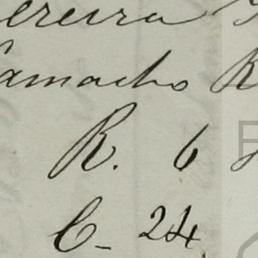 ereira
amacho R
R. 6
C- 24.